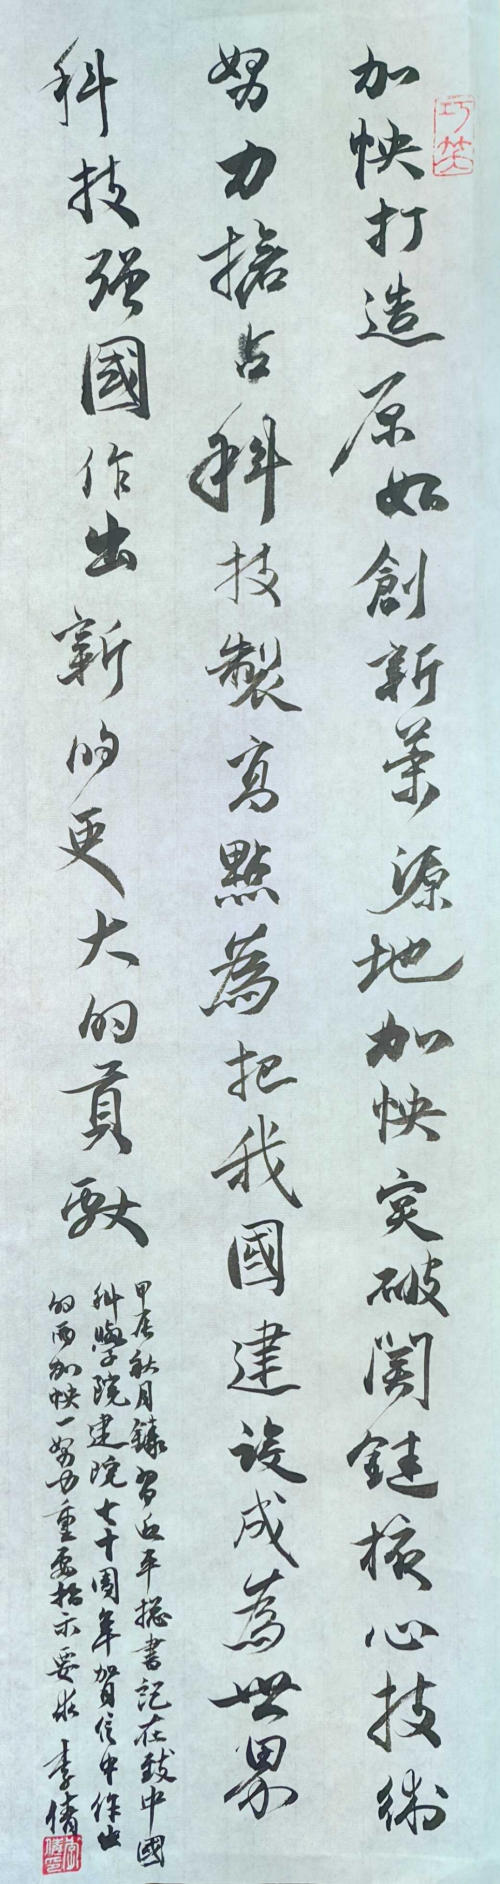 巧笑
加快打造原始創新策源地加快突破関鍵核心技術
努力搶占科技製高點為把我國建設成為世界
科技强國作出新的更大的貢獻
甲辰秋月録習近平總書記在致中國
科學院建院七十周年賀信中作出
的两加快一努力重要指示要求 李倩